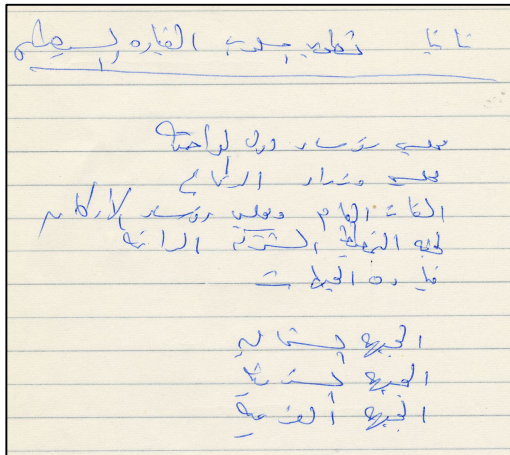 ثانيا تطوير اسلوب القيادة والسيطرة
مجلس رؤساء دول المواجهة
مجلس وزراء الدفاع
القائد العام ومجلس رؤساء الأركان
لجنة التخطيط المشتركة الدائمة
قيادة الجبهات
الجبهة الشمالية
الجبهة الشرقية
الجبهة الغربية